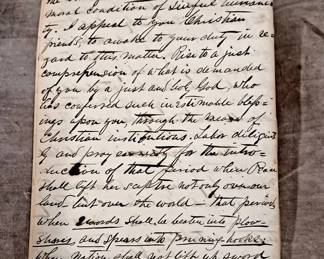 moral condition of sinful humani-
ty. I appeal to you Christian
friends, to awake to your duty in re-
gard to this matter. Rise to a just
comprehension of what is demanded
of you by a just and holy God, who
has conferred such inestimable bless-
ings upon you, through the
Christian institutions. Labor diligent
ly and pray earnestly for the intro-
duction of that period when Peace
shall her not only over our
land but over the world — that period
when swords shall be beaten into plow-
shares, and spears into pruning-hooks;
when Nation shall not lift up sword